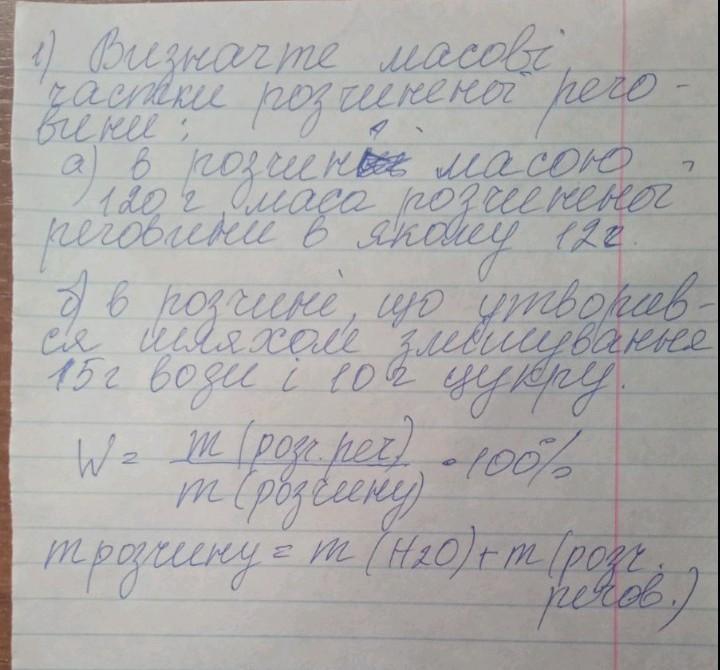 1) Визначте масові
частки розчиненої речо-
вини:
а) в розчині масою
120 г маса розчиненої
реговини в якому 12г.
б) в розчині, що утворив-
ся шляхом змішування
15г води і 10 г цукру.
W = m (розч.реч) / m (розчину) • 100%
m розчину = m (H2O) + m (розч.
речов.)